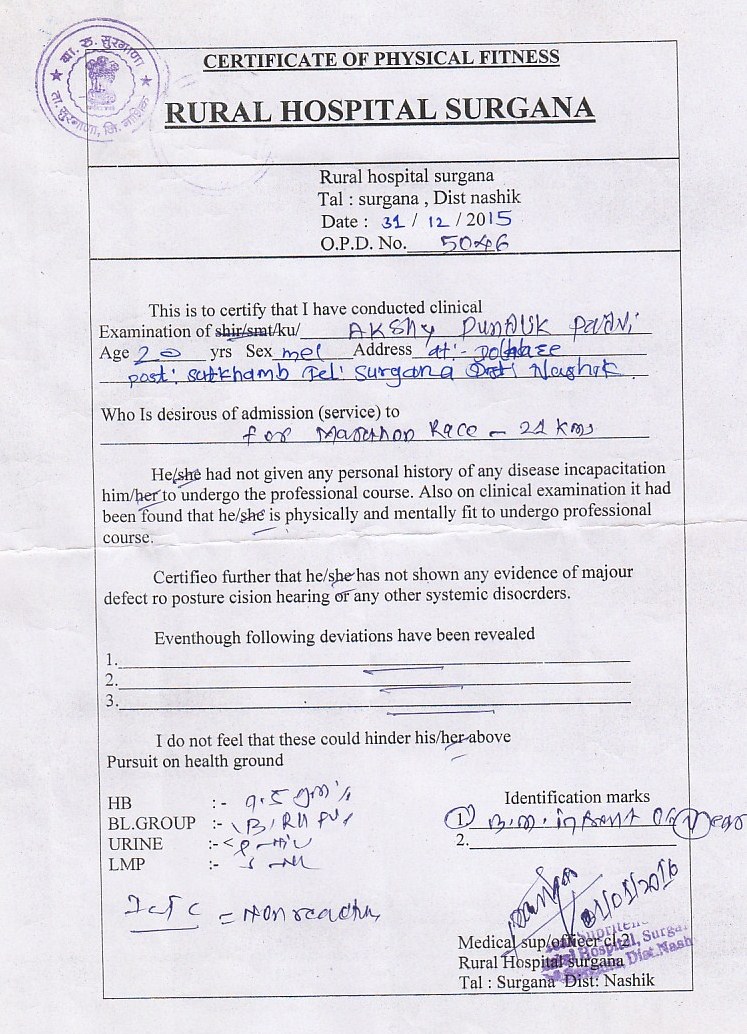 बा. रु. सुरगाणा
ता. सुरगाणा, जि. नाशिक
CERTIFICATE OF PHYSICAL FITNESS
RURAL HOSPITAL SURGANA
Rural hospital surgana
Tal : surgana , Dist nashik
Date : 31 / 12 / 2015
O.P.D. No. 5046
This is to certify that I have conducted clinical
Examination of shir/smt/ku/ AKSHY
Age 20 yrs Sex mel Address at:-
post: Surgana Nashik
Who Is desirous of admission (service) to
for Race - 21 kms
He/she had not given any personal history of any disease incapacitation
him/her to undergo the professional course. Also on clinical examination it had
been found that he/she is physically and mentally fit to undergo professional
course.
Certifieo further that he/she has not shown any evidence of majour
defect ro posture cision hearing or any other systemic disocrders.
Eventhough following deviations have been revealed
1.
2.
3.
I do not feel that these could hinder his/her above
Pursuit on health ground
HB :- 9.5 gm%
BL.GROUP :-
URINE :-
LMP :-
ICTC = Non
Identification marks
1
2.
Medical sup/officer cl:2
Rural Hospital surgana
Tal : Surgana Dist: Nashik